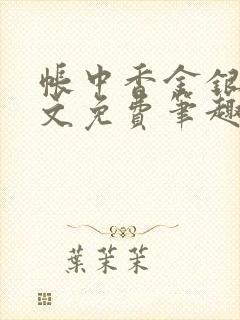 帐中香金银
文免费笔趣
葉茉茉